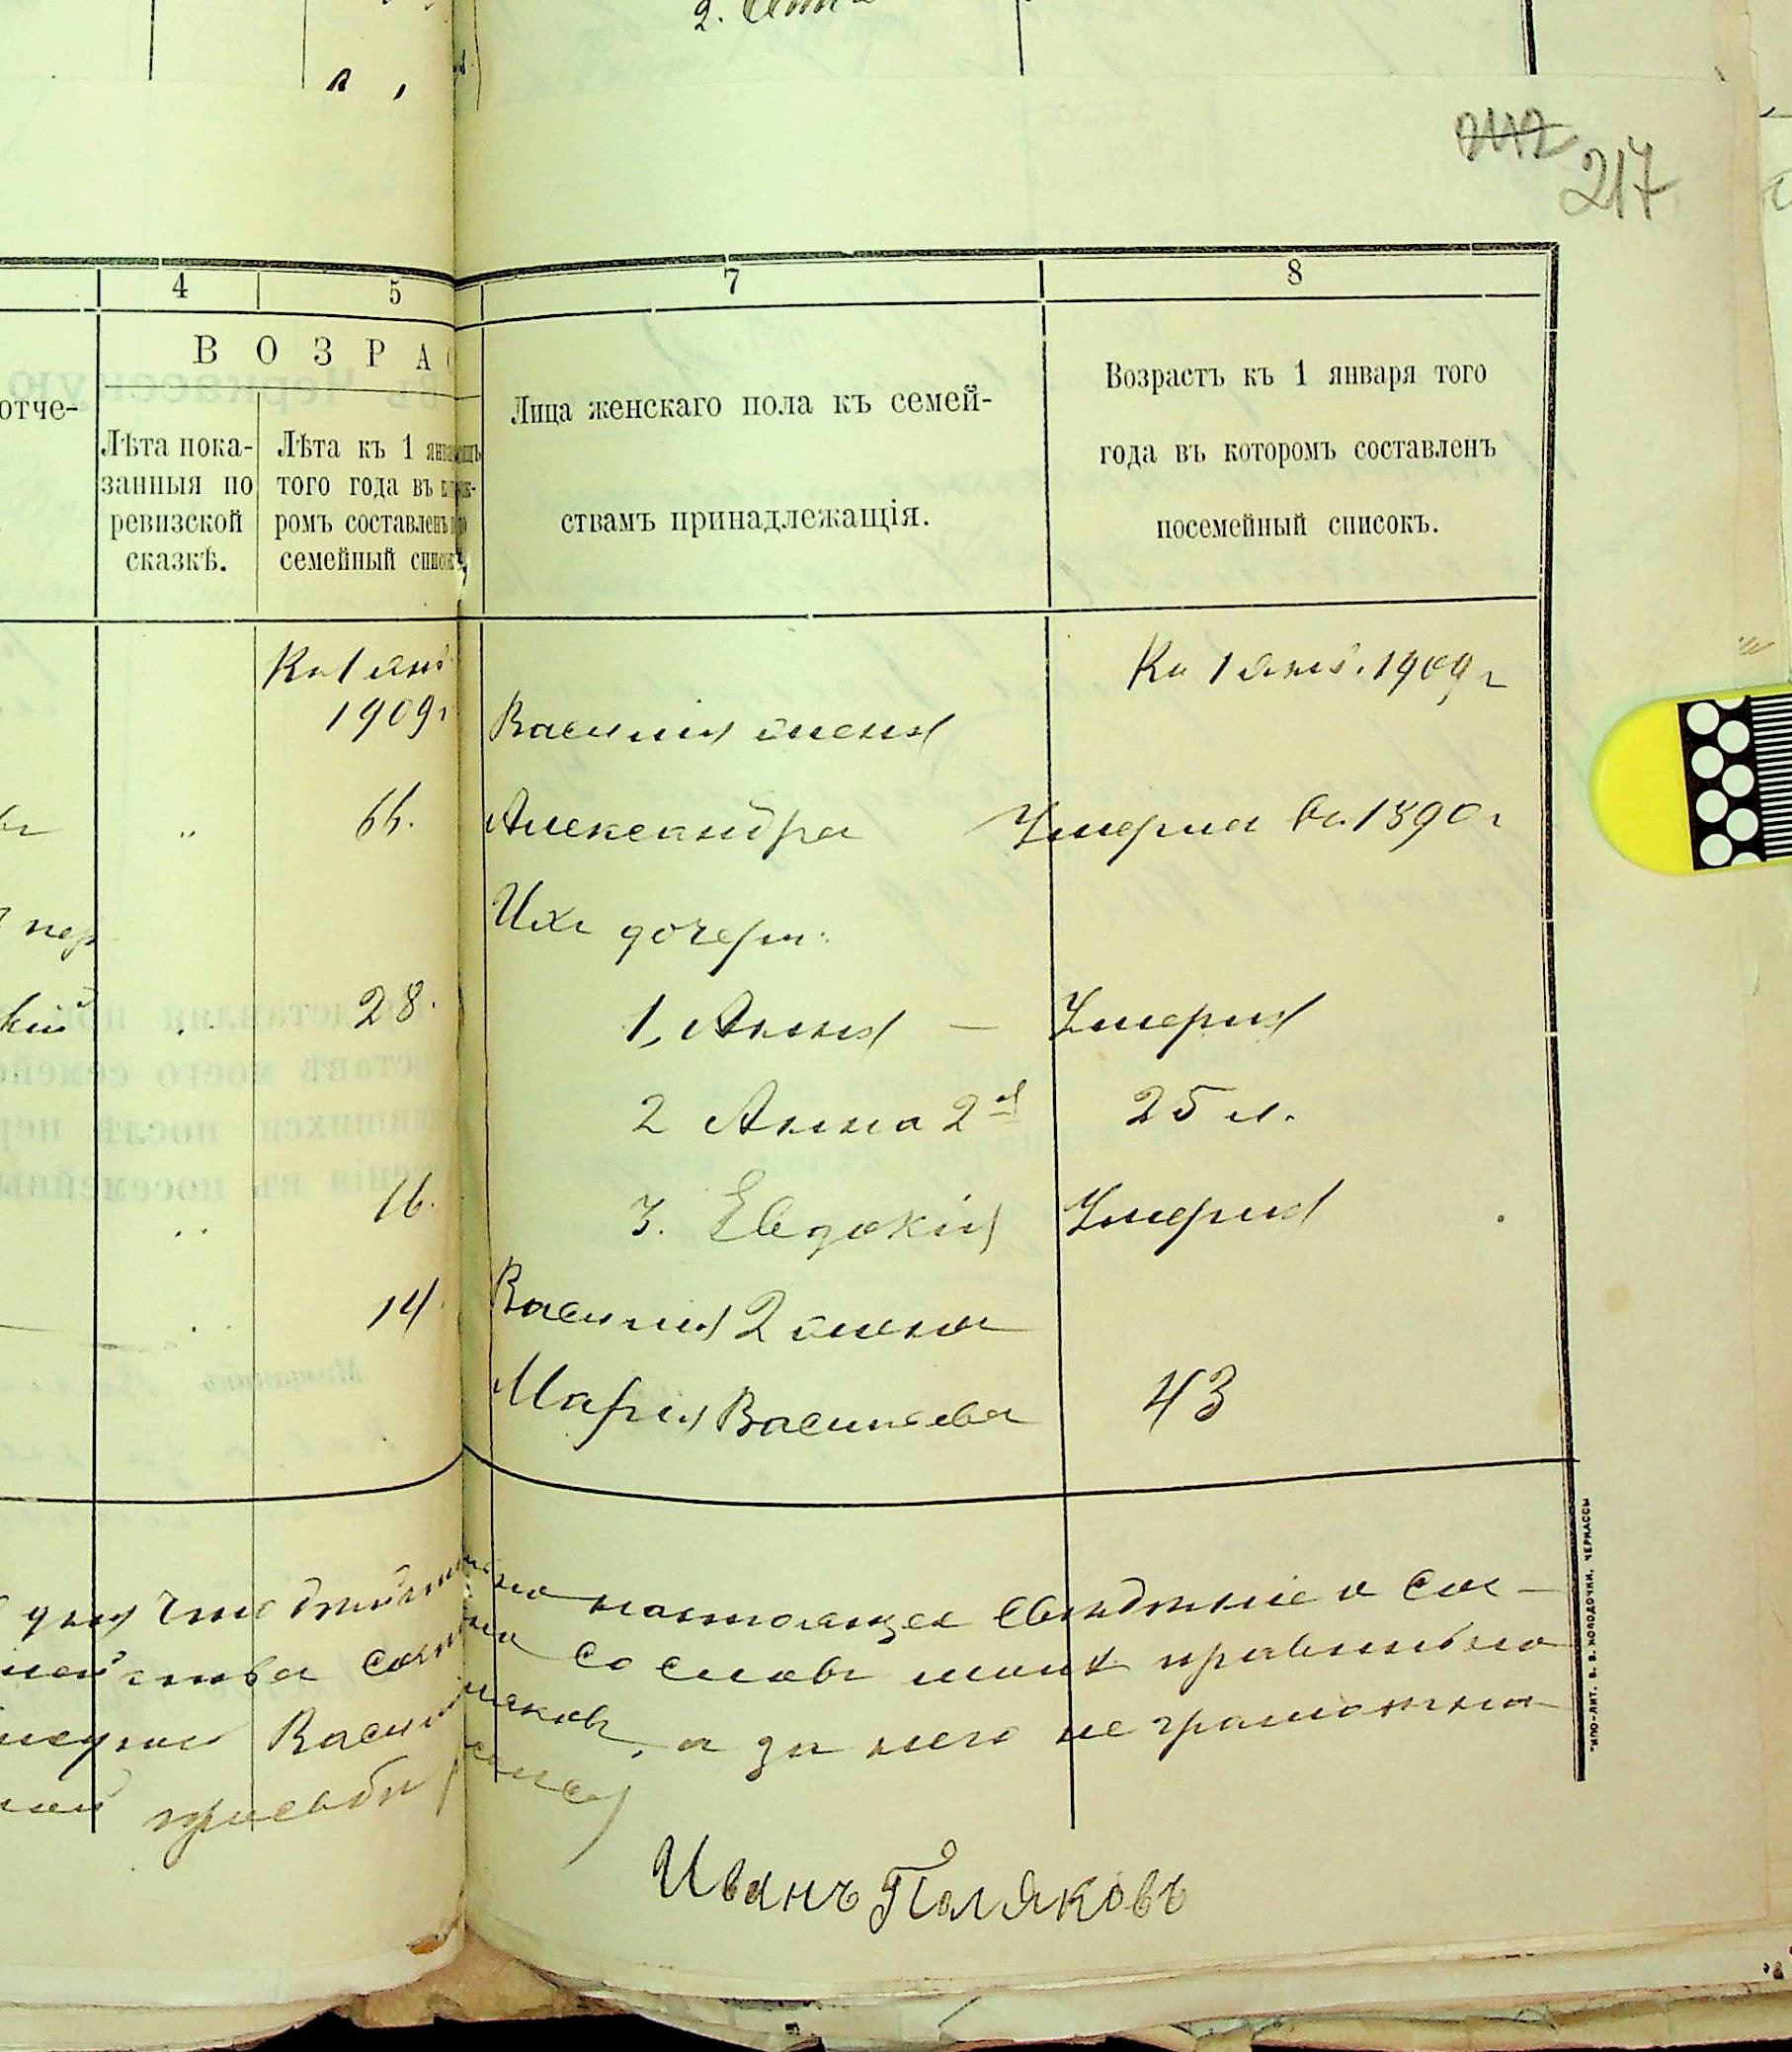 2.
2112
217
4 5
ВОЗРАС
отче-
Лѣта пока-
занныя по
ревизской
сказкѣ.
Лѣта къ 1 янв
того года въ
ромъ составленъ
семейный списокъ
Къ 1 янв.
1909 г
66.
28.
16.
14.
7 8
Лица женскаго пола къ семей-
ствамъ принадлежащія.
Возрастъ къ 1 января того
года въ которомъ составленъ
посемейный списокъ.
Къ 1 янв. 1909 г
Василія жена
Александра Умерла въ 1890 г
Ихъ дочери:
1, Анна — Умерла
2 Анна 2я 25 л.
3. Евдокія Умерла
Василія 2 жена
Марія Васильева 43
что настоящее свѣдѣніе о сос-
со словъ моихъ правильно
Васи а за него неграмотна
просьбѣ
Иванъ Поляковъ
ТИПО-ЛИТ. В. В. КОЛОДОЧКИ, ЧЕРКАССЫ